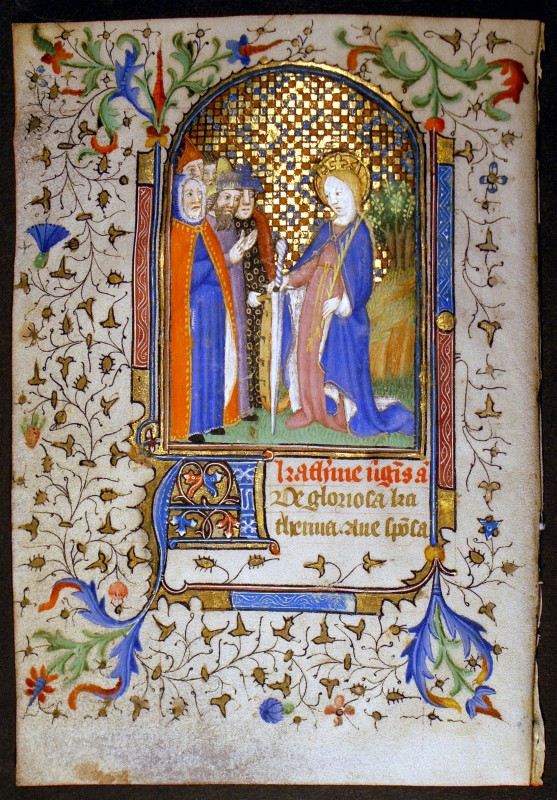 kath'ine ũgĩs ã
AVe gloriosa ka
therina. Aue spõsa